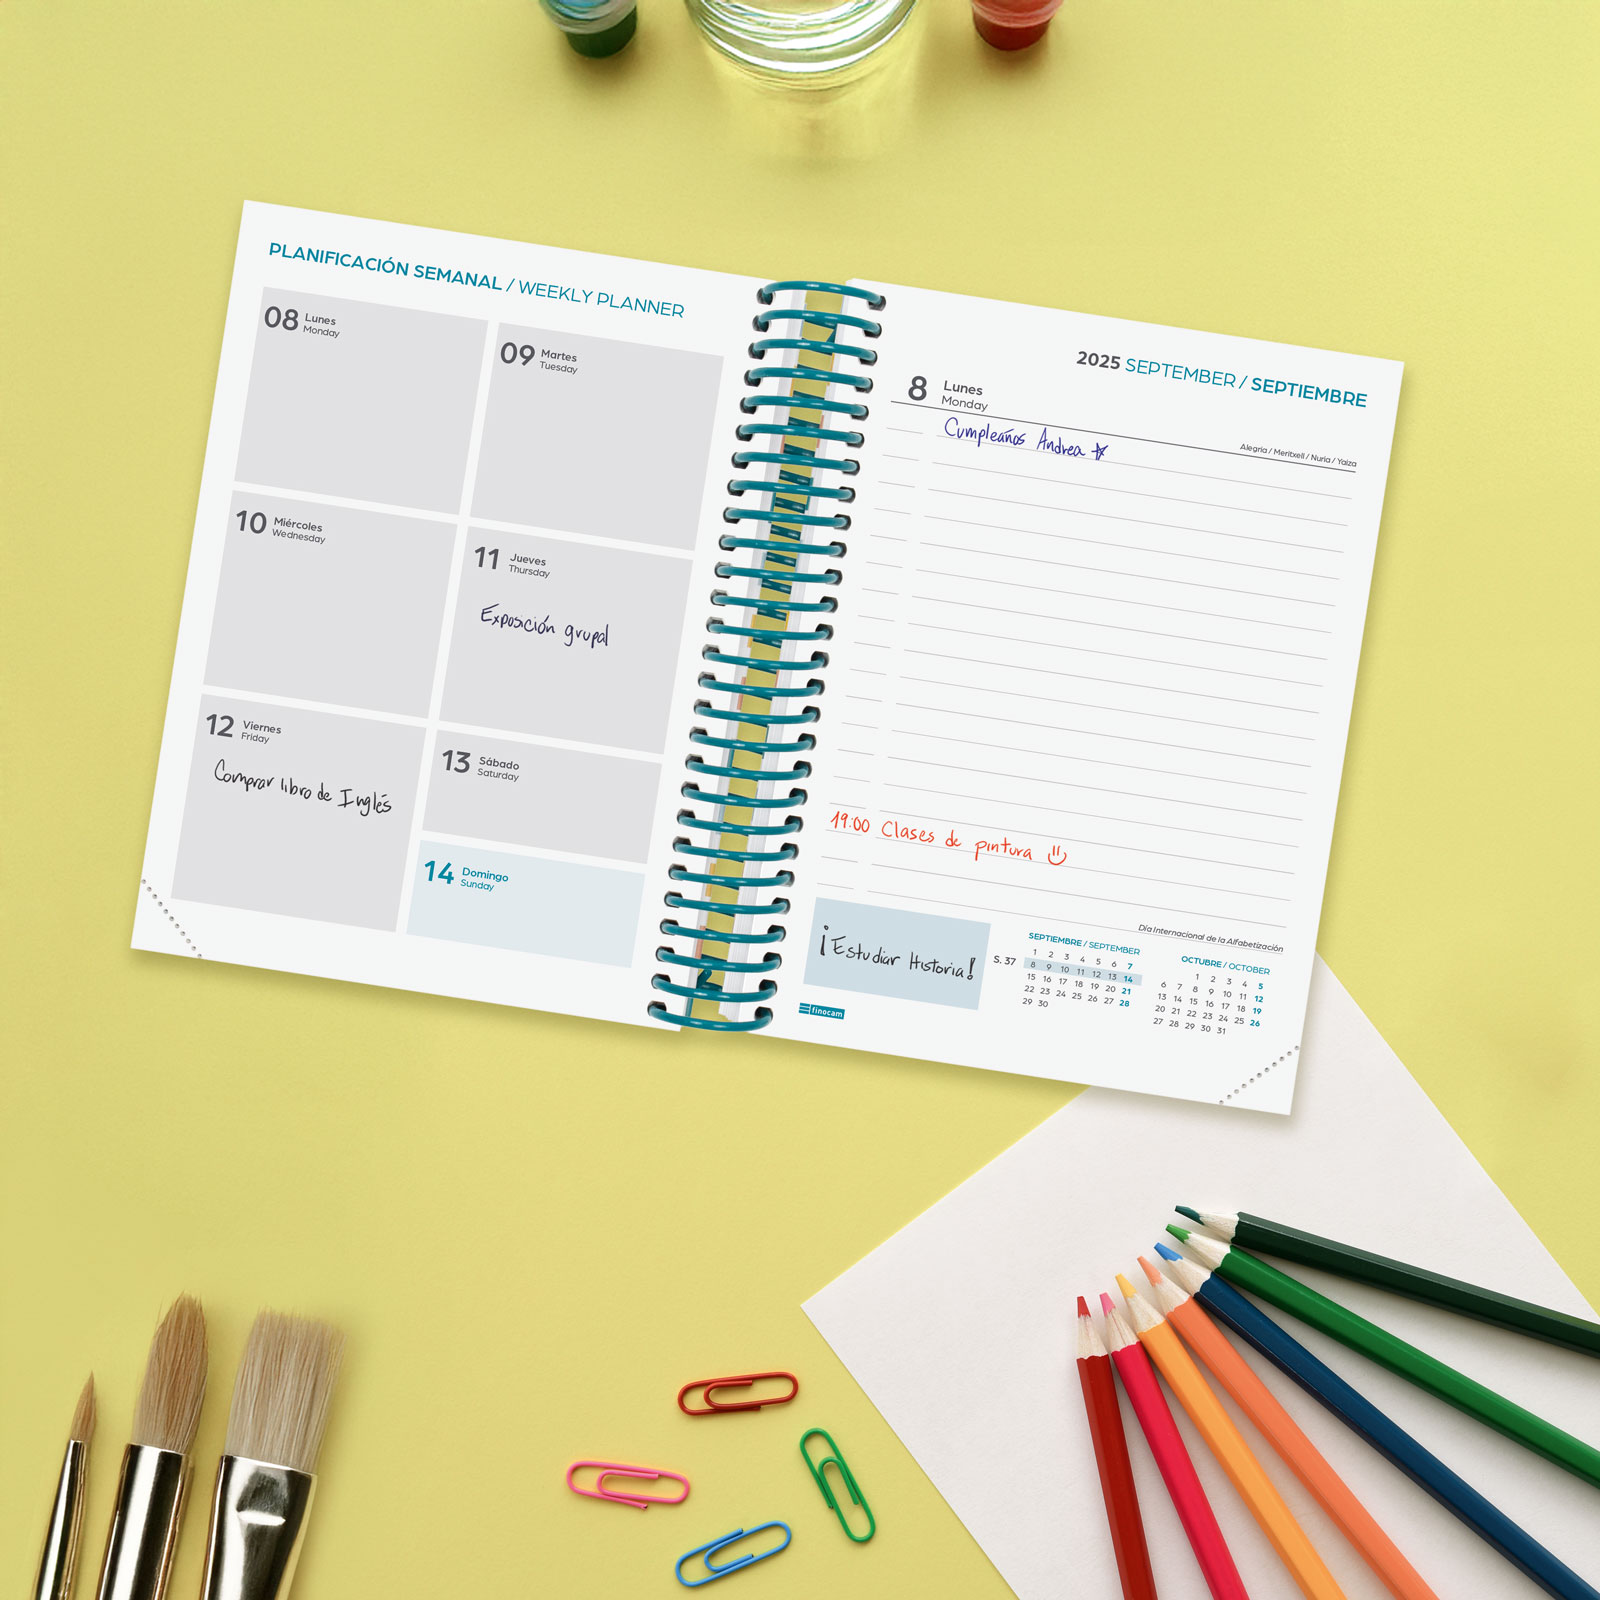 PLANIFICACIÓN SEMANAL / WEEKLY PLANNER
08 Lunes
Monday
09 Martes
Tuesday
10 Miércoles
Wednesday
11 Jueves
Thursday
Exposición grupal
12 Viernes
Friday
Comprar libro de Inglés
13 Sábado
Saturday
14 Domingo
Sunday
2025 SEPTEMBER / SEPTIEMBRE
8 Lunes
Monday
Alegría / Meritxell / Nuria / Yaiza
Cumpleaños Andrea
19:00 Clases de pintura
Día Internacional de la Alfabetización
¡Estudiar Historia!
finocam
S. 37
SEPTIEMBRE / SEPTEMBER
1 2 3 4 5 6 7
8 9 10 11 12 13 14
15 16 17 18 19 20 21
22 23 24 25 26 27 28
29 30
OCTUBRE / OCTOBER
1 2 3 4 5
6 7 8 9 10 11 12
13 14 15 16 17 18 19
20 21 22 23 24 25 26
27 28 29 30 31